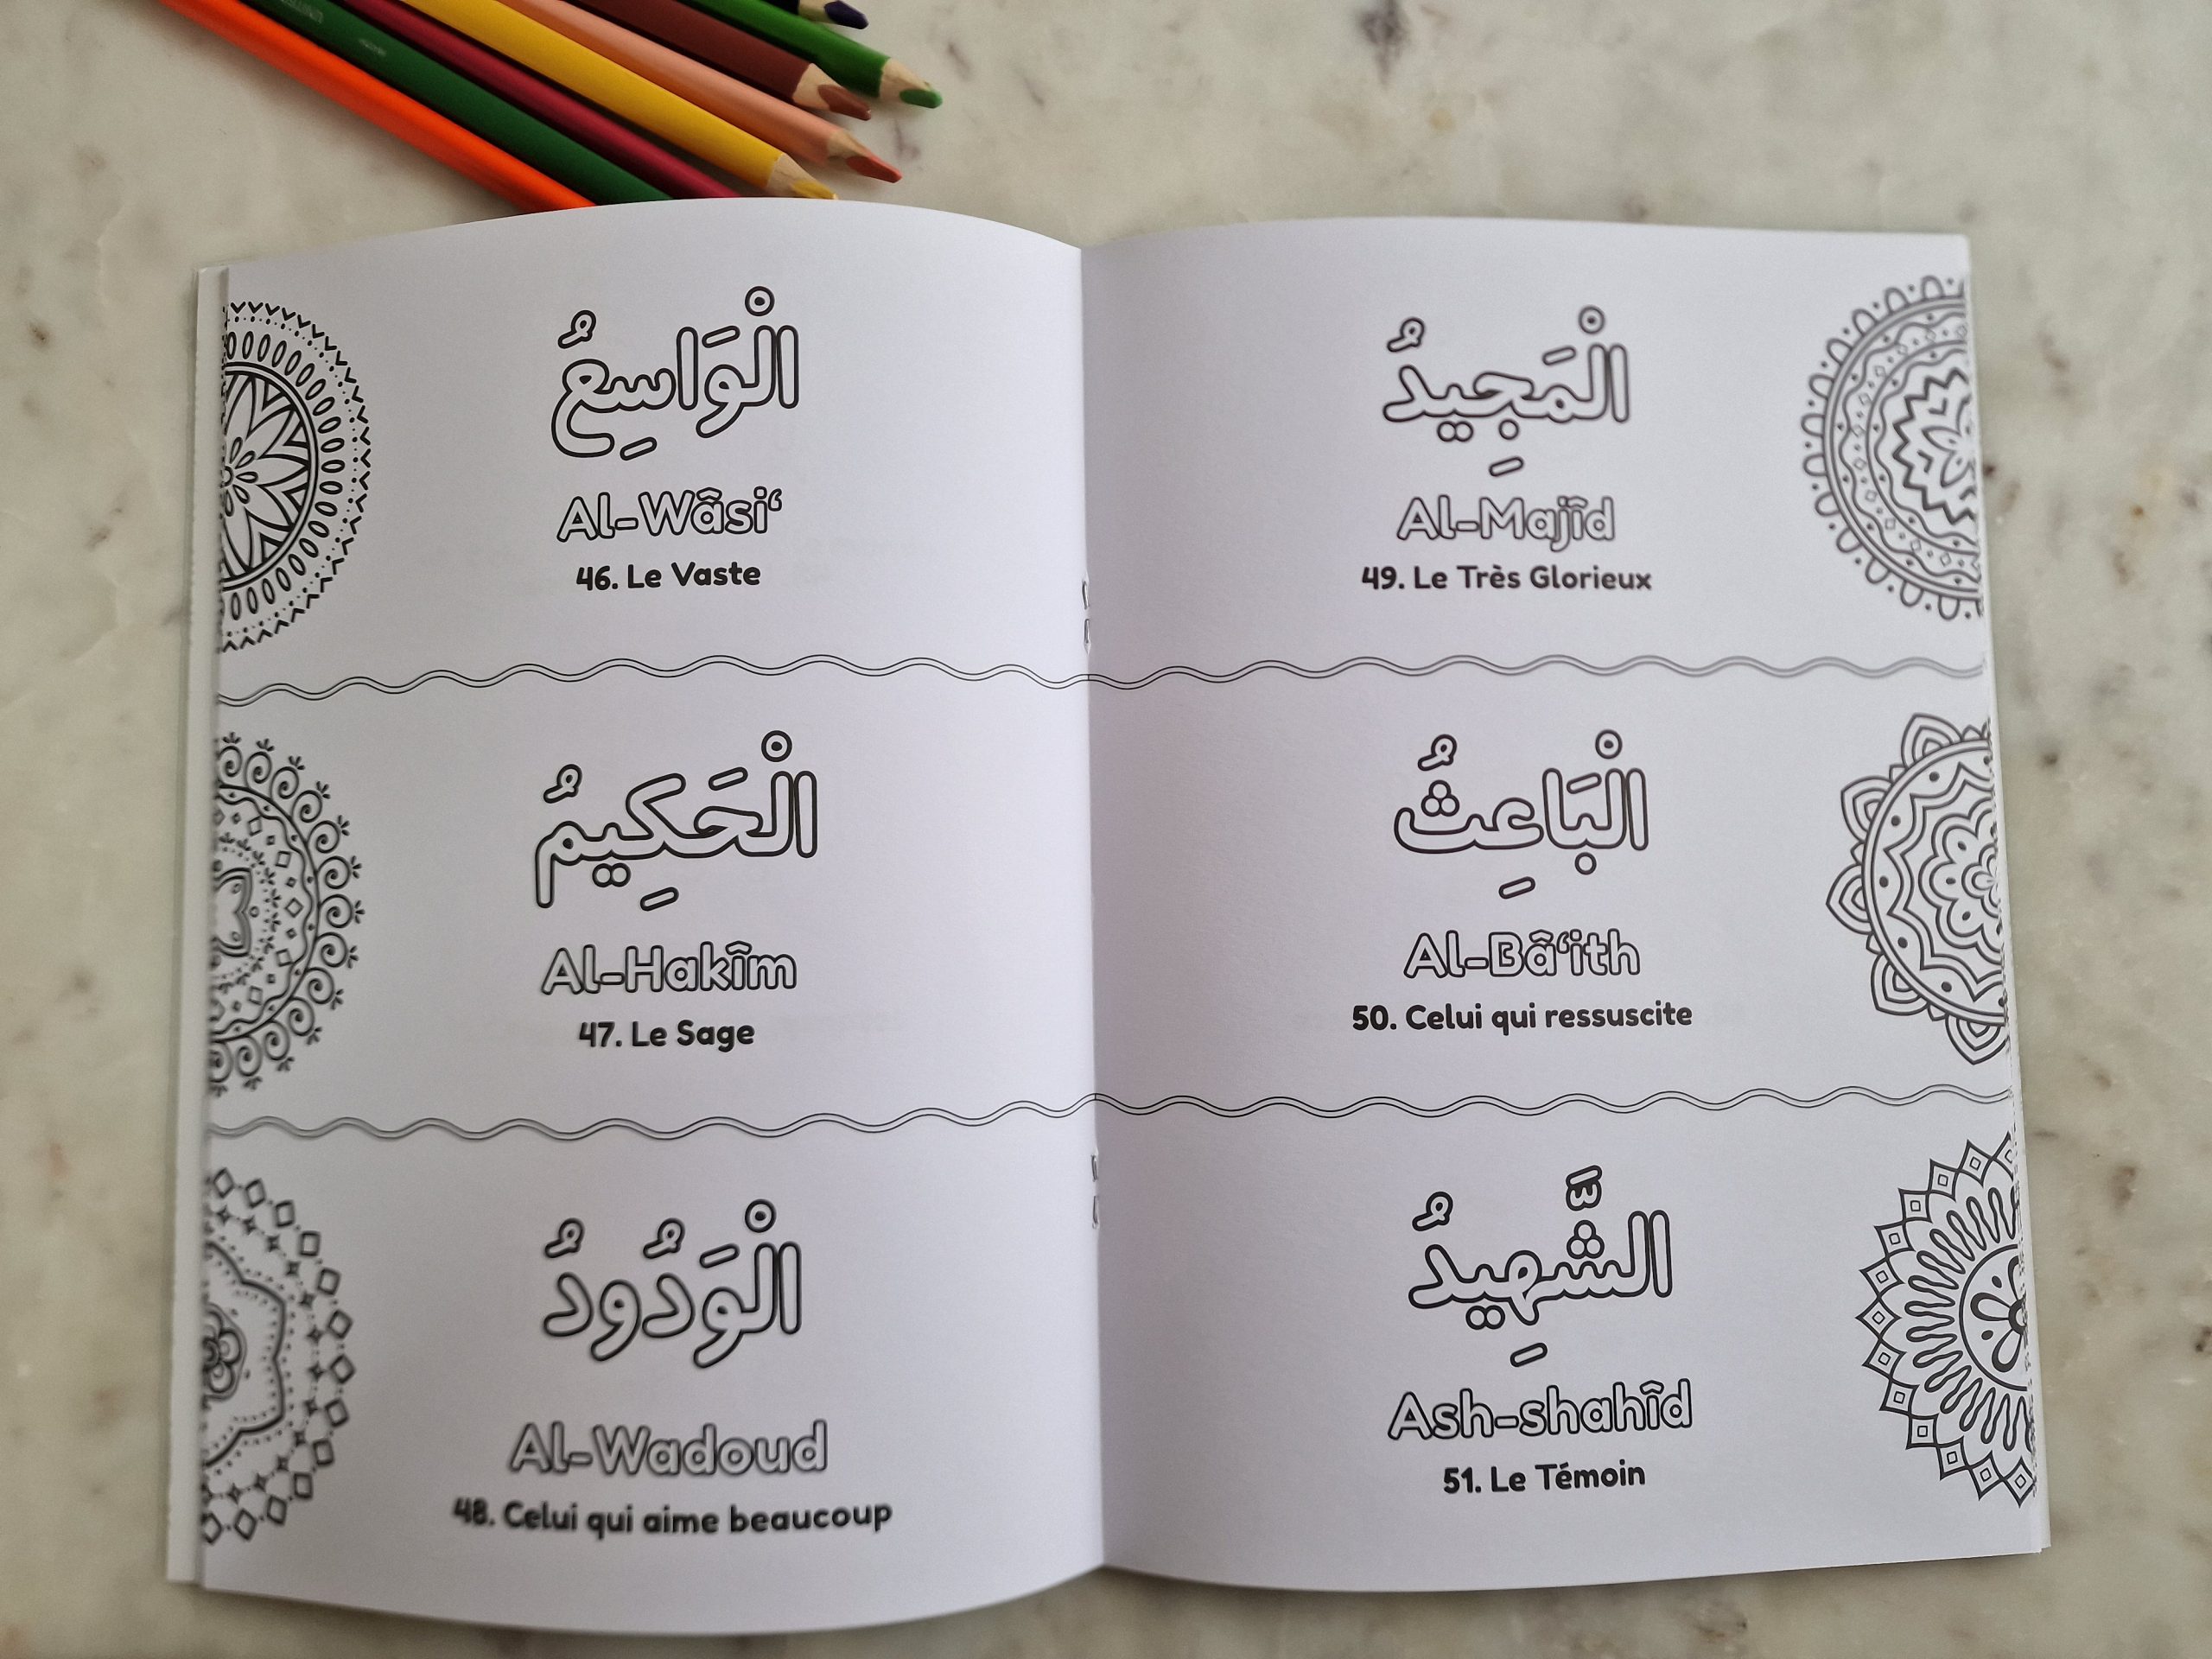 الْوَاسِعُ
Al-Wâsi‘
46. Le Vaste
الْحَكِيمُ
Al-Hakîm
47. Le Sage
الْوَدُودُ
Al-Wadoud
48. Celui qui aime beaucoup
الْمَجِيدُ
Al-Majîd
49. Le Très Glorieux
الْبَاعِثُ
Al-Bâ‘ith
50. Celui qui ressuscite
الشَّهِيدُ
Ash-shahîd
51. Le Témoin